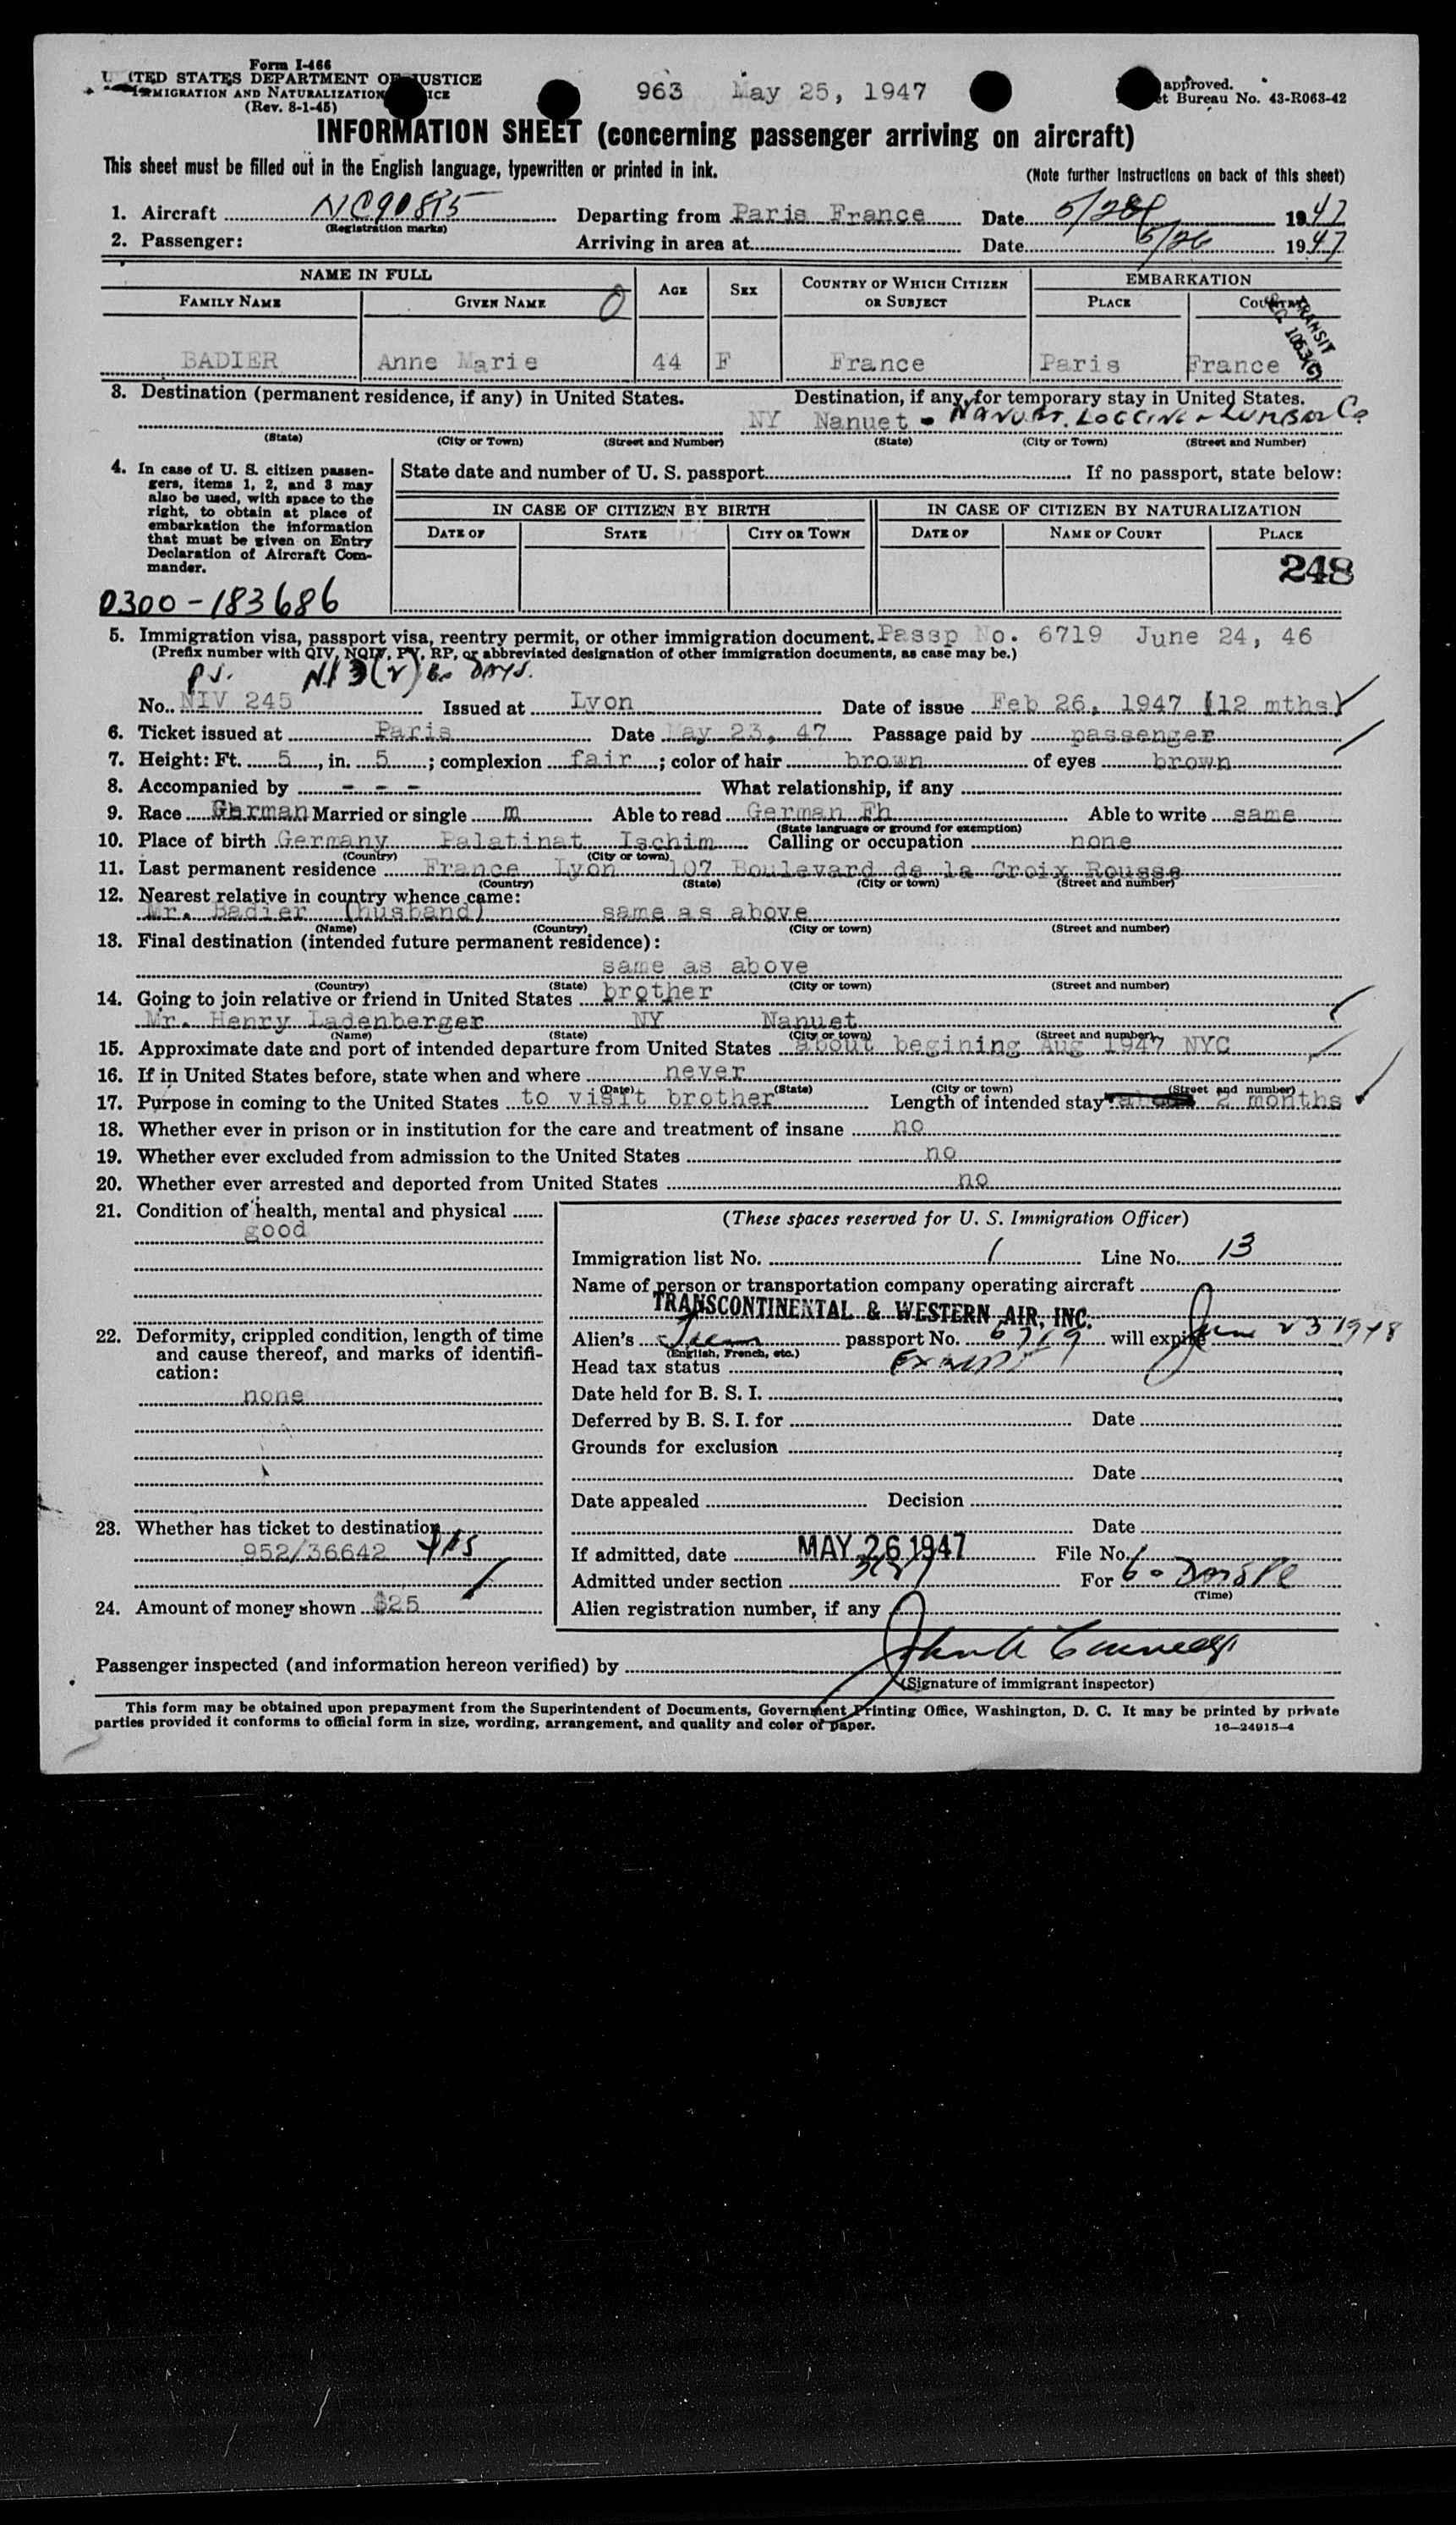 Form I-466
UNITED STATES DEPARTMENT OF JUSTICE
IMMIGRATION AND NATURALIZATION SERVICE
(Rev. 8-1-45)
963 May 25, 1947
approved.
Bureau No. 43-R063-42
INFORMATION SHEET (concerning passenger arriving on aircraft)
This sheet must be filled out in the English language, typewritten or printed in ink.
(Note further instructions on back of this sheet)
1. Aircraft NC90815 Departing from Paris France Date 5/ 1947
(Registration marks)
2. Passenger: Arriving in area at Date 5/26 1947
NAME IN FULL AGE SEX COUNTRY OF WHICH CITIZEN OR SUBJECT EMBARKATION
FAMILY NAME GIVEN NAME PLACE COUNTRY
TRANSIT
BADIER Anne Marie 44 F France Paris France
3. Destination (permanent residence, if any) in United States. Destination, if any, for temporary stay in United States.
NY Nanuet - NANUET. LOGGING & LUMBER Co.
(State) (City or Town) (Street and Number) (State) (City or Town) (Street and Number)
4. In case of U. S. citizen passengers, items 1, 2, and 3 may also be used, with space to the right, to obtain at place of embarkation the information that must be given on Entry Declaration of Aircraft Commander.
State date and number of U. S. passport If no passport, state below:
IN CASE OF CITIZEN BY BIRTH IN CASE OF CITIZEN BY NATURALIZATION
DATE OF STATE CITY OR TOWN DATE OF NAME OF COURT PLACE
248
0300-183686
5. Immigration visa, passport visa, reentry permit, or other immigration document. Passp No. 6719 June 24, 46
(Prefix number with QIV, NQIV, PV, RP, or abbreviated designation of other immigration documents, as case may be.)
3(2) 60 DAYS.
No. NIV 245 Issued at Lyon Date of issue Feb 26, 1947 (12 mths)
6. Ticket issued at Paris Date May 23, 47 Passage paid by passenger
7. Height: Ft. 5, in. 5; complexion fair; color of hair brown of eyes brown
8. Accompanied by - - - What relationship, if any
9. Race German Married or single m Able to read German Fh Able to write same
(State language or ground for exemption)
10. Place of birth Germany Palatinat Ischim Calling or occupation none
(Country) (City or town)
11. Last permanent residence France Lyon 107 Boulevard de la Croix Rousse
(Country) (State) (City or town) (Street and number)
12. Nearest relative in country whence came:
Mr. Badier (husband) same as above
(Name) (Country) (City or town) (Street and number)
13. Final destination (intended future permanent residence):
same as above
(Country) (State) (City or town) (Street and number)
14. Going to join relative or friend in United States brother
Mr. Henry Ladenberger NY Nanuet
(Name) (State) (City or town) (Street and number)
15. Approximate date and port of intended departure from United States about begining Aug 1947 NYC
16. If in United States before, state when and where never
(Date) (State) (City or town) (Street and number)
17. Purpose in coming to the United States to visit brother Length of intended stay 2 months
18. Whether ever in prison or in institution for the care and treatment of insane no
19. Whether ever excluded from admission to the United States no
20. Whether ever arrested and deported from United States no
21. Condition of health, mental and physical
good
22. Deformity, crippled condition, length of time and cause thereof, and marks of identification:
none
23. Whether has ticket to destination
952/36642 yes
24. Amount of money shown $25
(These spaces reserved for U. S. Immigration Officer)
Immigration list No. 1 Line No. 13
Name of person or transportation company operating aircraft
TRANSCONTINENTAL & WESTERN AIR, INC.
Alien's passport No. 6719 will expire June 23 1948
(English, French, etc.)
Head tax status Exempt
Date held for B. S. I.
Deferred by B. S. I. for Date
Grounds for exclusion
Date
Date appealed Decision
Date
If admitted, date MAY 26 1947 File No.
Admitted under section 3(2) For 60 Days
(Time)
Alien registration number, if any
Passenger inspected (and information hereon verified) by
(Signature of immigrant inspector)
This form may be obtained upon prepayment from the Superintendent of Documents, Government Printing Office, Washington, D. C. It may be printed by private
parties provided it conforms to official form in size, wording, arrangement, and quality and color of paper.
16—24915-4